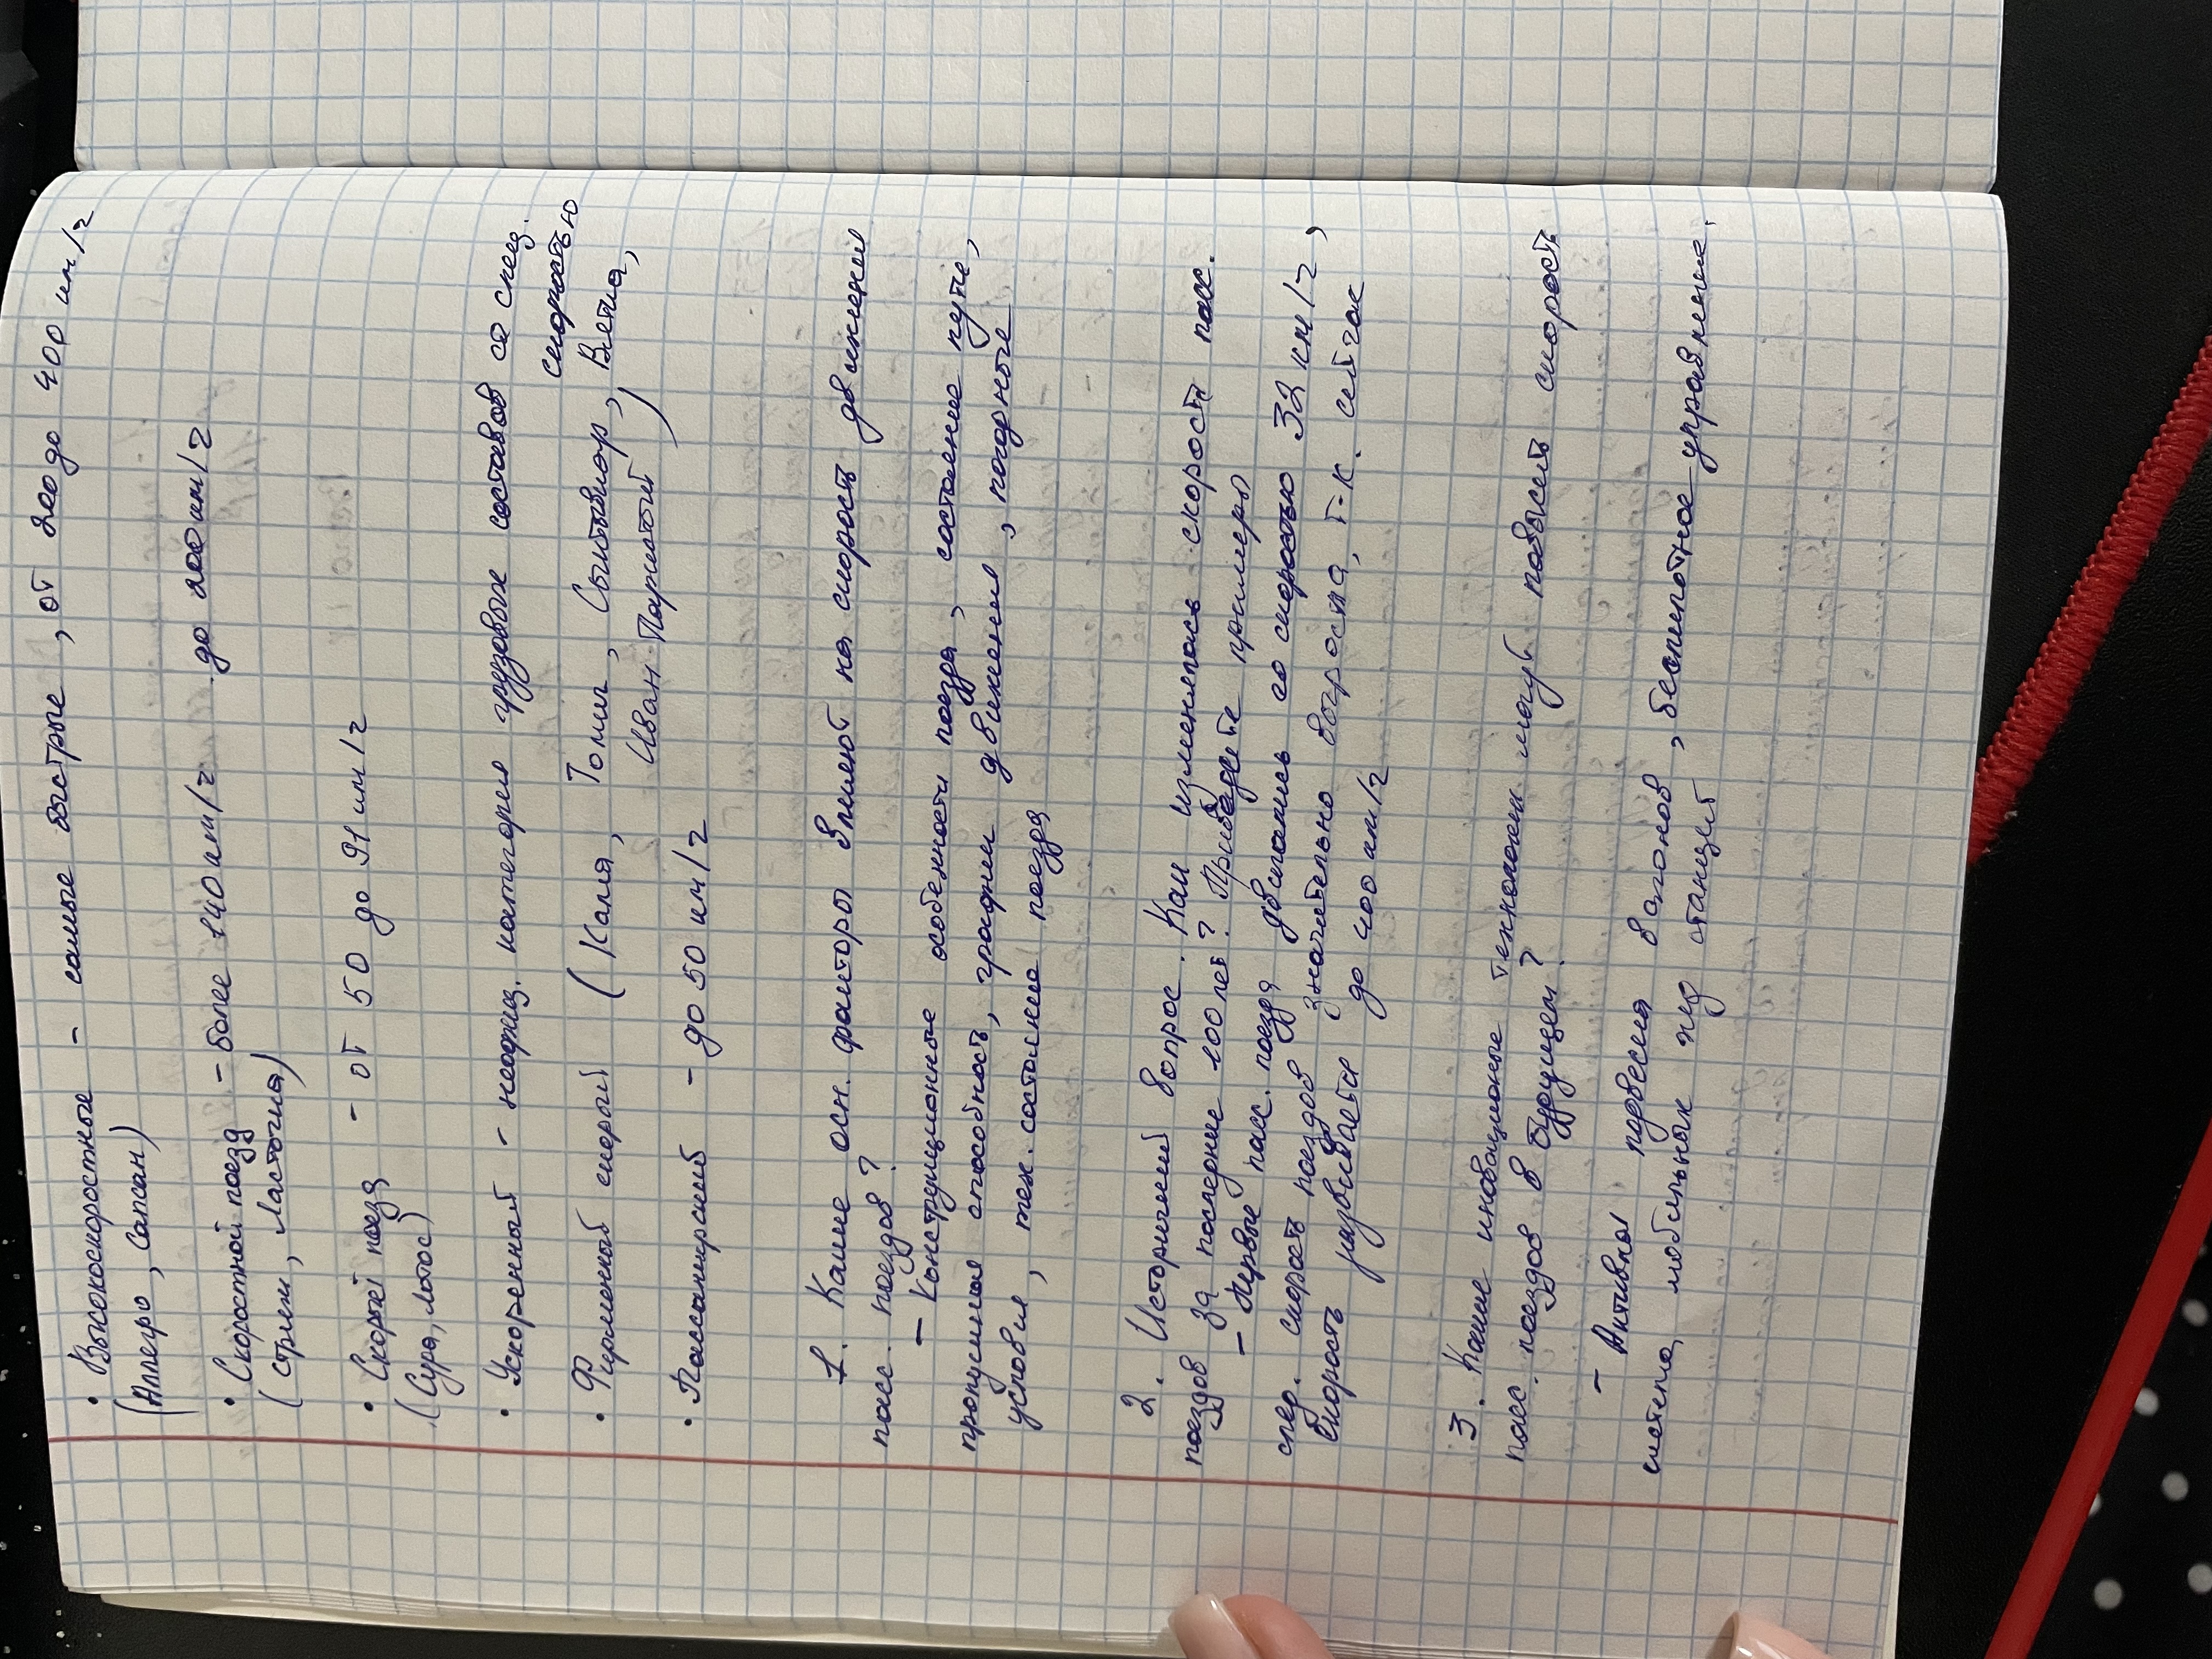 • Высокоскоростные - самые быстрые, от 200 до 400 км/г
(Аллегро, Сапсан)
• Скоростной поезд - более 140 км/г до 200 км/г
(Стриж, Ласточка)
• Скорый поезд - от 50 до 91 км/г
(Сура, Лотос)
• Ускоренный - неофиц. категория грузовых составов со спец.
скоростью
• Фирменный скорый (Калея, Томич, Сыктывкар, Вятка,
Иван Паристый)
• Пассажирский - до 50 км/г
1. Какие осн. факторы влияют на скорость движения
пасс. поездов?
- Конструкционные особенности поезда, состояние пути,
пропускная способность, график движения, погодные
условия, тех. состояние поезда
2. Исторический вопрос. Как изменялась скорость пасс.
поездов за последние 100 лет? Приведите примеры
- Первые пасс. поезда двигались со скоростью 32 км/г,
след. скорость поездов значительно возросла, т-к. сейчас
скорость развивается до 400 км/г
3. Какие инновационые технологии могут повысить скорость
пасс. поездов в будующем?
- Активная подвеска вагонов, беспилотное управление,
система мобильных жд станций